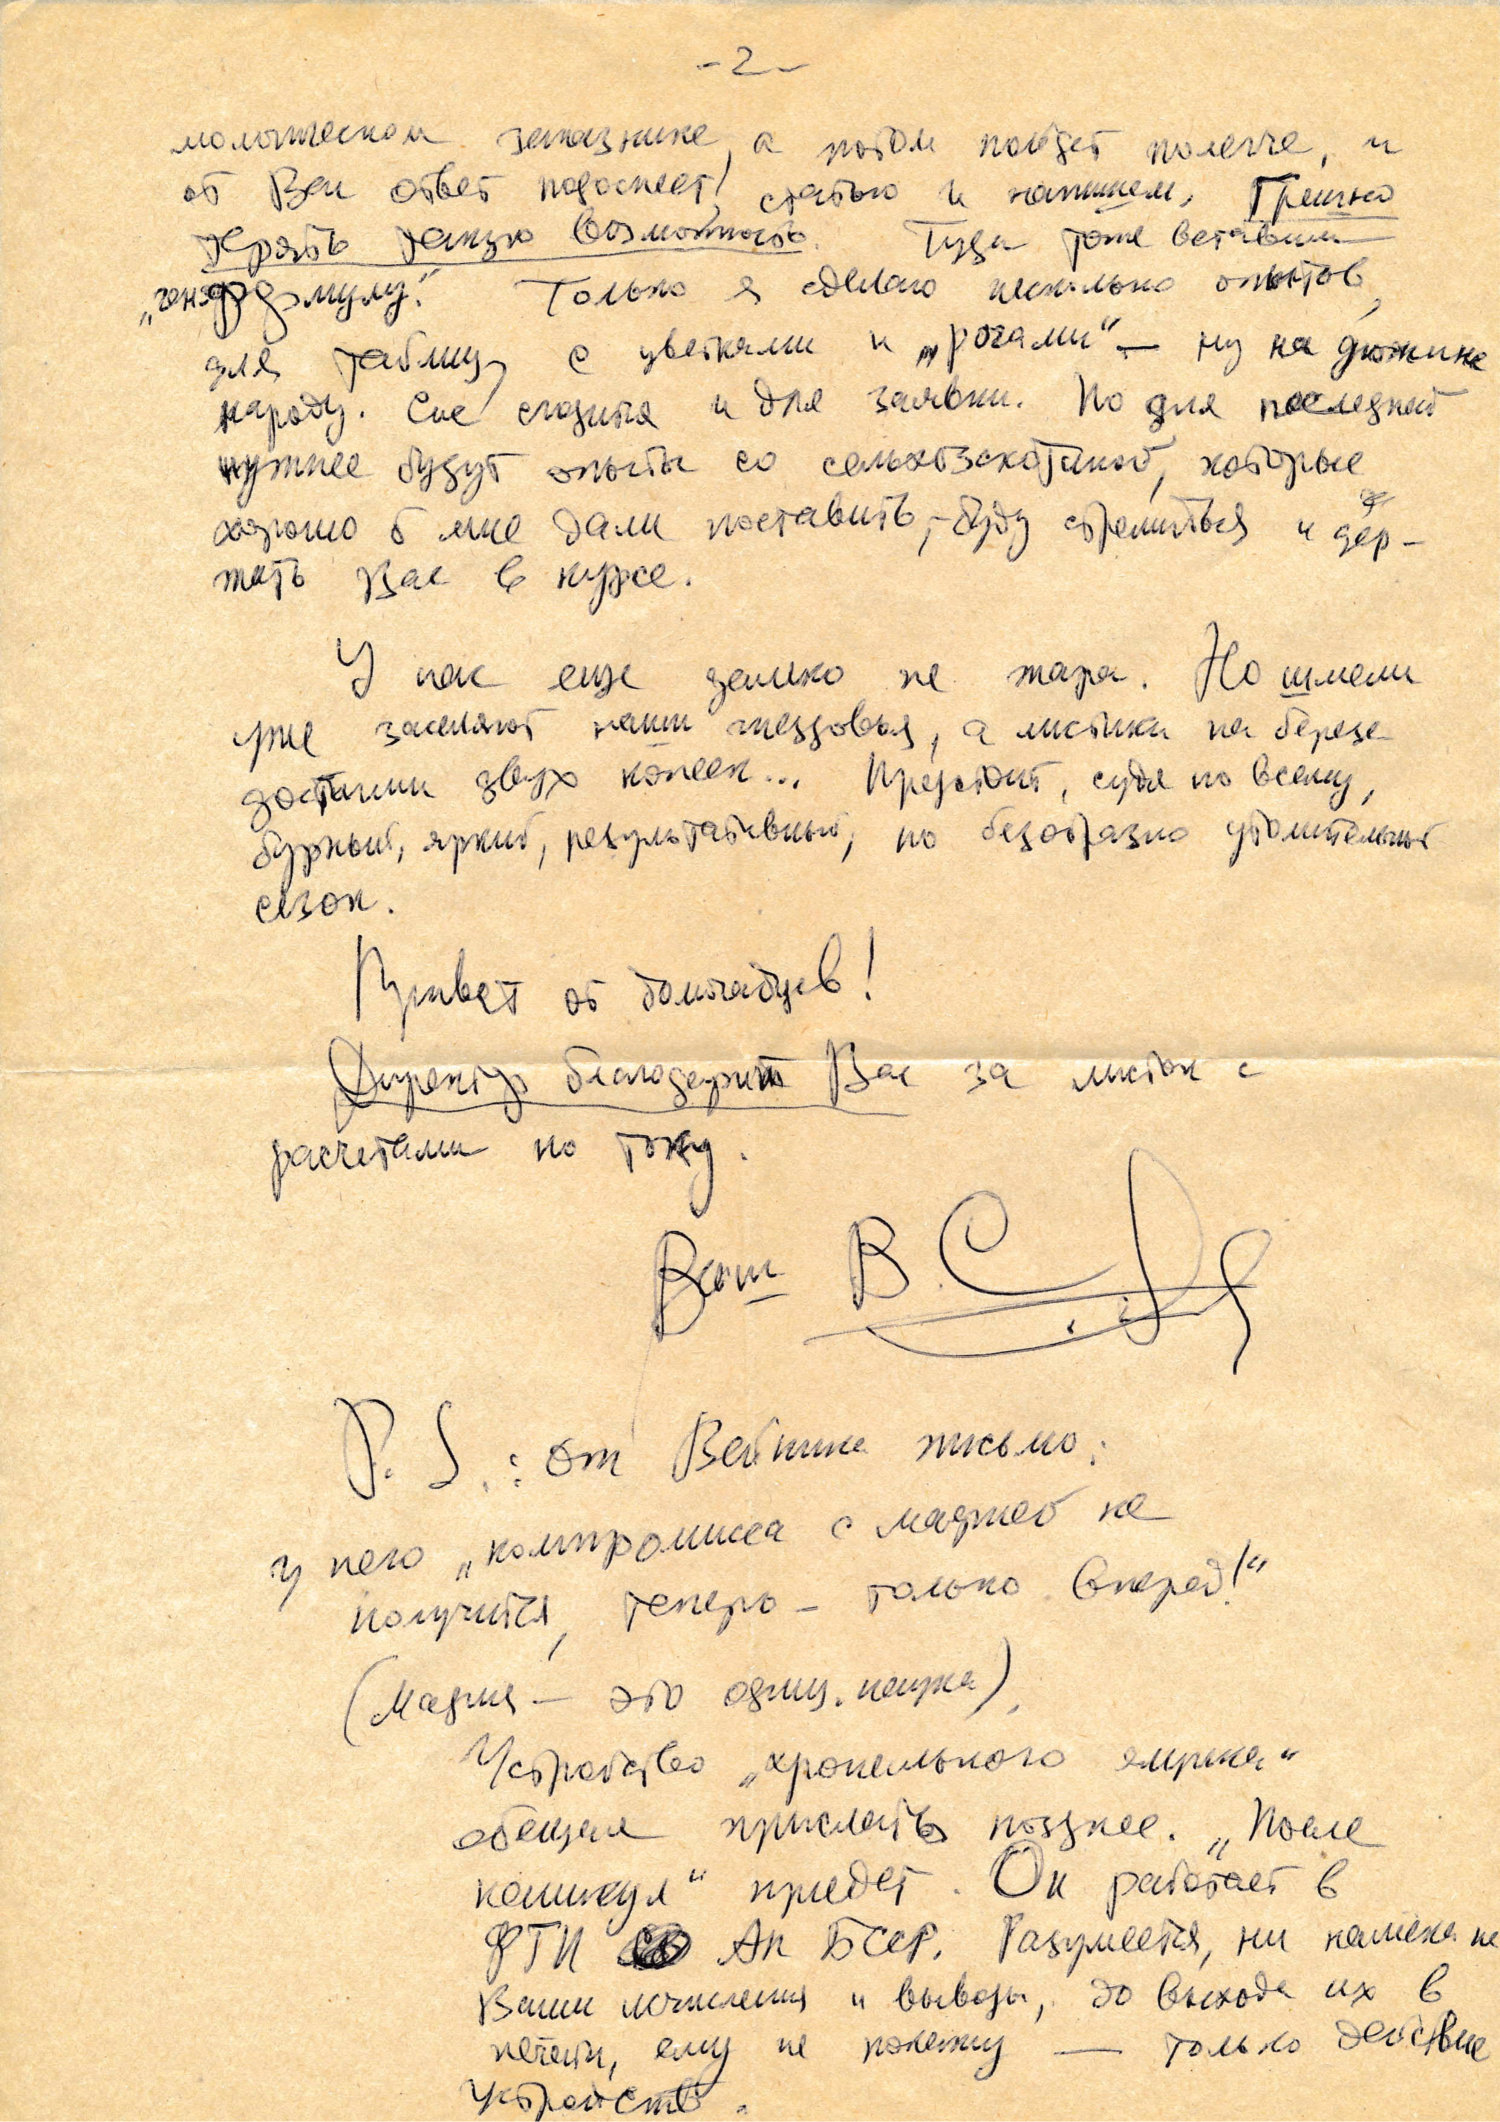 -2-
мологическом заказнике, а потом пойдет полегче, и
от Вас ответ подоспеет, статью и напишем. Грешно
терять такую возможность. Туда тоже вставим
„ формулу". Только я сделаю несколько опытов,
для таблиц, с цветками и „рогами" — ну на дюжине
народу. Сие сгодится и для заявки. Но для последней
нужнее будут опыты со сельхозскотиной, которые
хорошо б мне дали поставить, – буду стремиться и дер-
жать Вас в курсе.
У нас еще далеко не жара. Но шмели
уже заселяют наши гнездовья, а листики на березе
достигли двух копеек... Предстоит, судя по всему,
бурный, яркий, результативный, но безобразно утомительный
сезон.
Привет от домочадцев!
Директор благодарит Вас за листок с
расчетами по току.
Ваш В. С
P. S.: От Вейника письмо:
у него „компромисса с мафией не
получится, теперь – только вперед!"
(Мафия — это офиц. наука).
Устройство „хронального ящика"
обещал прислать позднее. „После
каникул" приедет. Он работает в
ФТИ АН БССР. Разумеется, ни намека на
Ваши исчисления и выводы, до выхода их в
печати, ему не покажу — только действие
устройств.